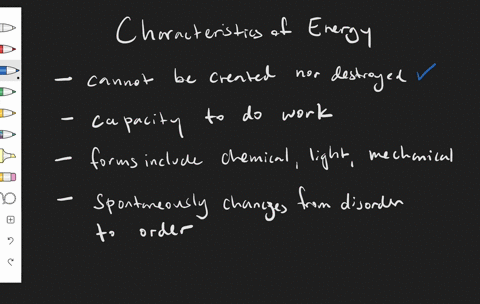 Characteristics of Energy
- cannot be created nor destroyed ✓
- capacity to do work
- forms include chemical, light, mechanical
- Spontaneously changes from disorder
to order